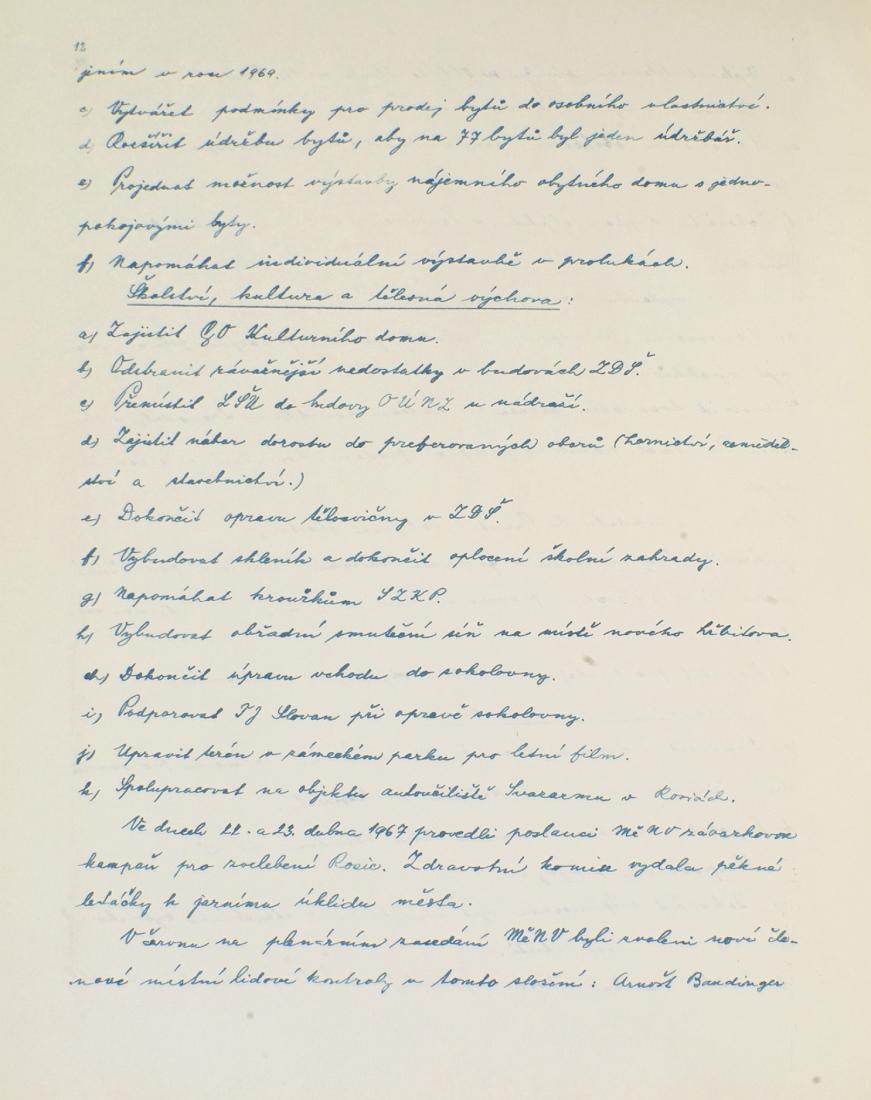 12
jením v roce 1969.
c) Vytvářet podmínky pro prodej bytů do osobního vlastnictví.
d) Rozšířit údržbu bytů, aby na 77 bytů byl jeden údržbář.
e) Projednat možnost výstavby nájemního obytného domu s jedno-
pokojovými byty.
f) Napomáhat individuální výstavbě v prolukách.
Školství, kultura a tělesná výchova:
a) Zajistit GO Kulturního domu.
b) Odstranit závažnější nedostatky v budovách ZDŠ.
c) Přemístit LŠU do budovy OÚNZ u nádraží.
d) Zajistit nábor dorostu do preferovaných oborů (hornictví, zeměděl-
ství a stavebnictví.)
e) Dokončit opravu tělocvičny v ZDŠ.
f) Vybudovat skleník a dokončit oplocení školní zahrady.
g) Napomáhat kroužkům SZKP.
h) Vybudovat obřadní smuteční síň na místě nového hřbitova.
ch) Dokončit úpravu vchodu do sokolovny.
i) Podporovat TJ Slovan při opravě sokolovny.
j) Upravit terén v zámeckém parku pro letní film.
k) Spolupracovat na objektu autoučiliště Svazarmu v Rosicích.
Ve dnech 22. a 23. dubna 1967 provedli poslanci MěNV závazkovou
kampaň pro zvelebení Rosic. Zdravotní komise vydala pěkné
letáčky k jarnímu úklidu města.
V červnu na plenárním zasedání MěNV byli zvoleni noví čle-
nové místní lidové kontroly v tomto složení: Arnošt Baudinger